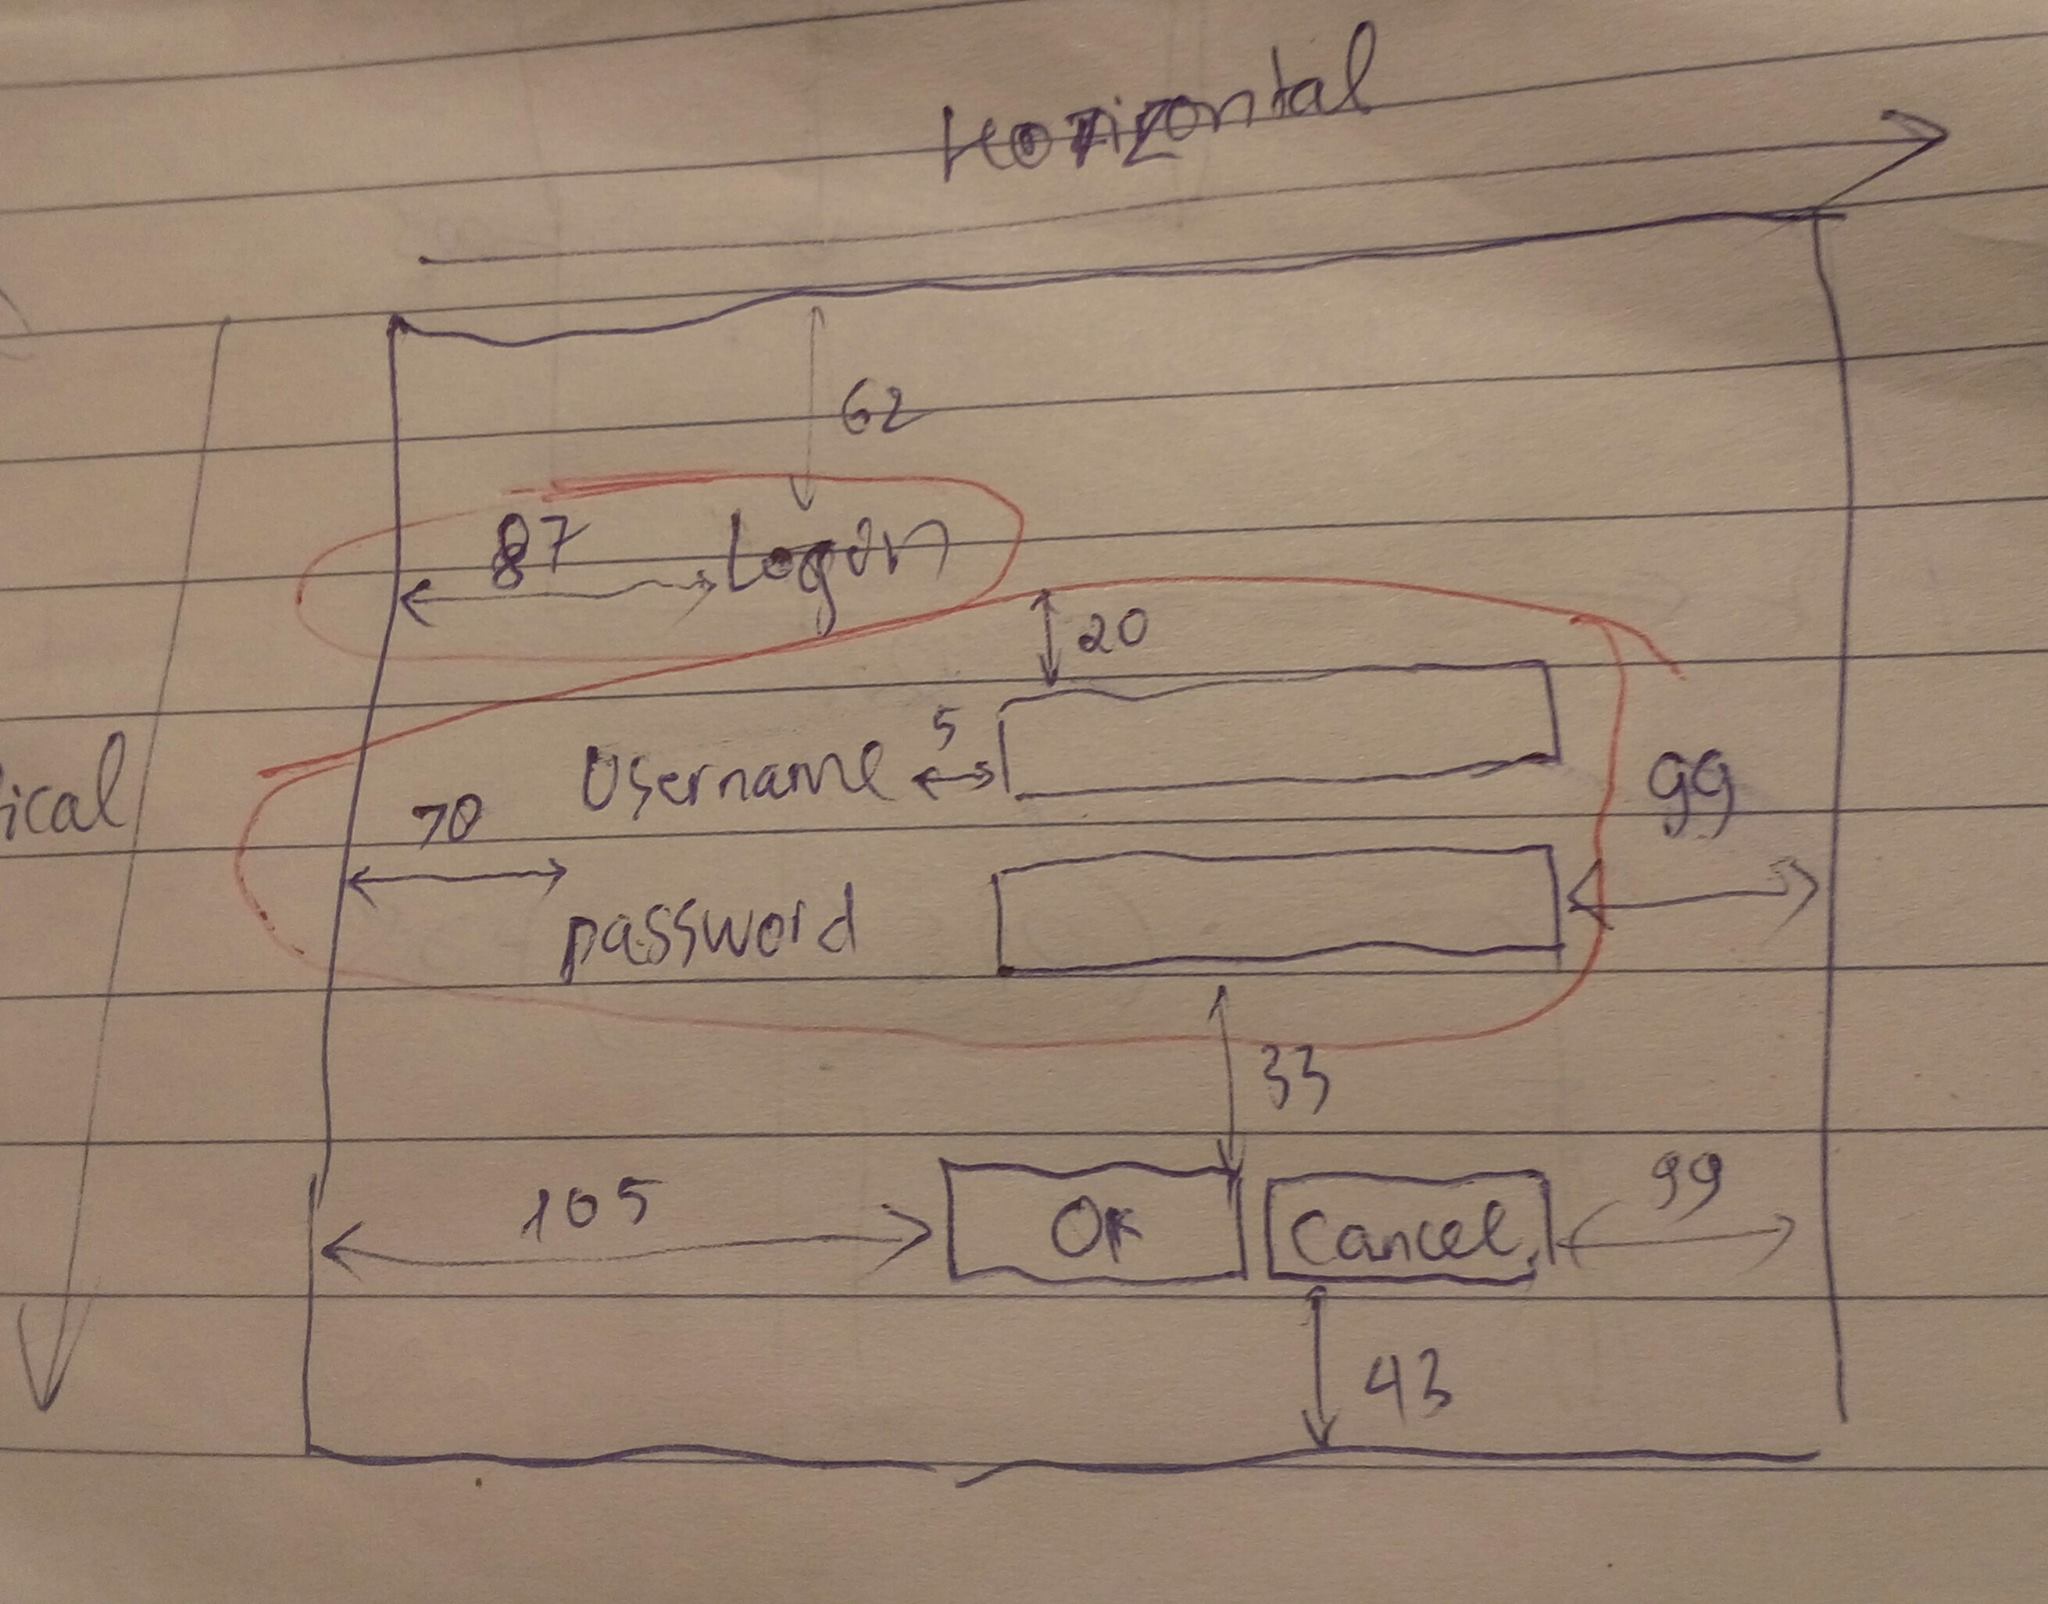 Horizontal
62
87 Logon
20
Username 5
99
ical
70
password
33
105 OK Cancel 99
43